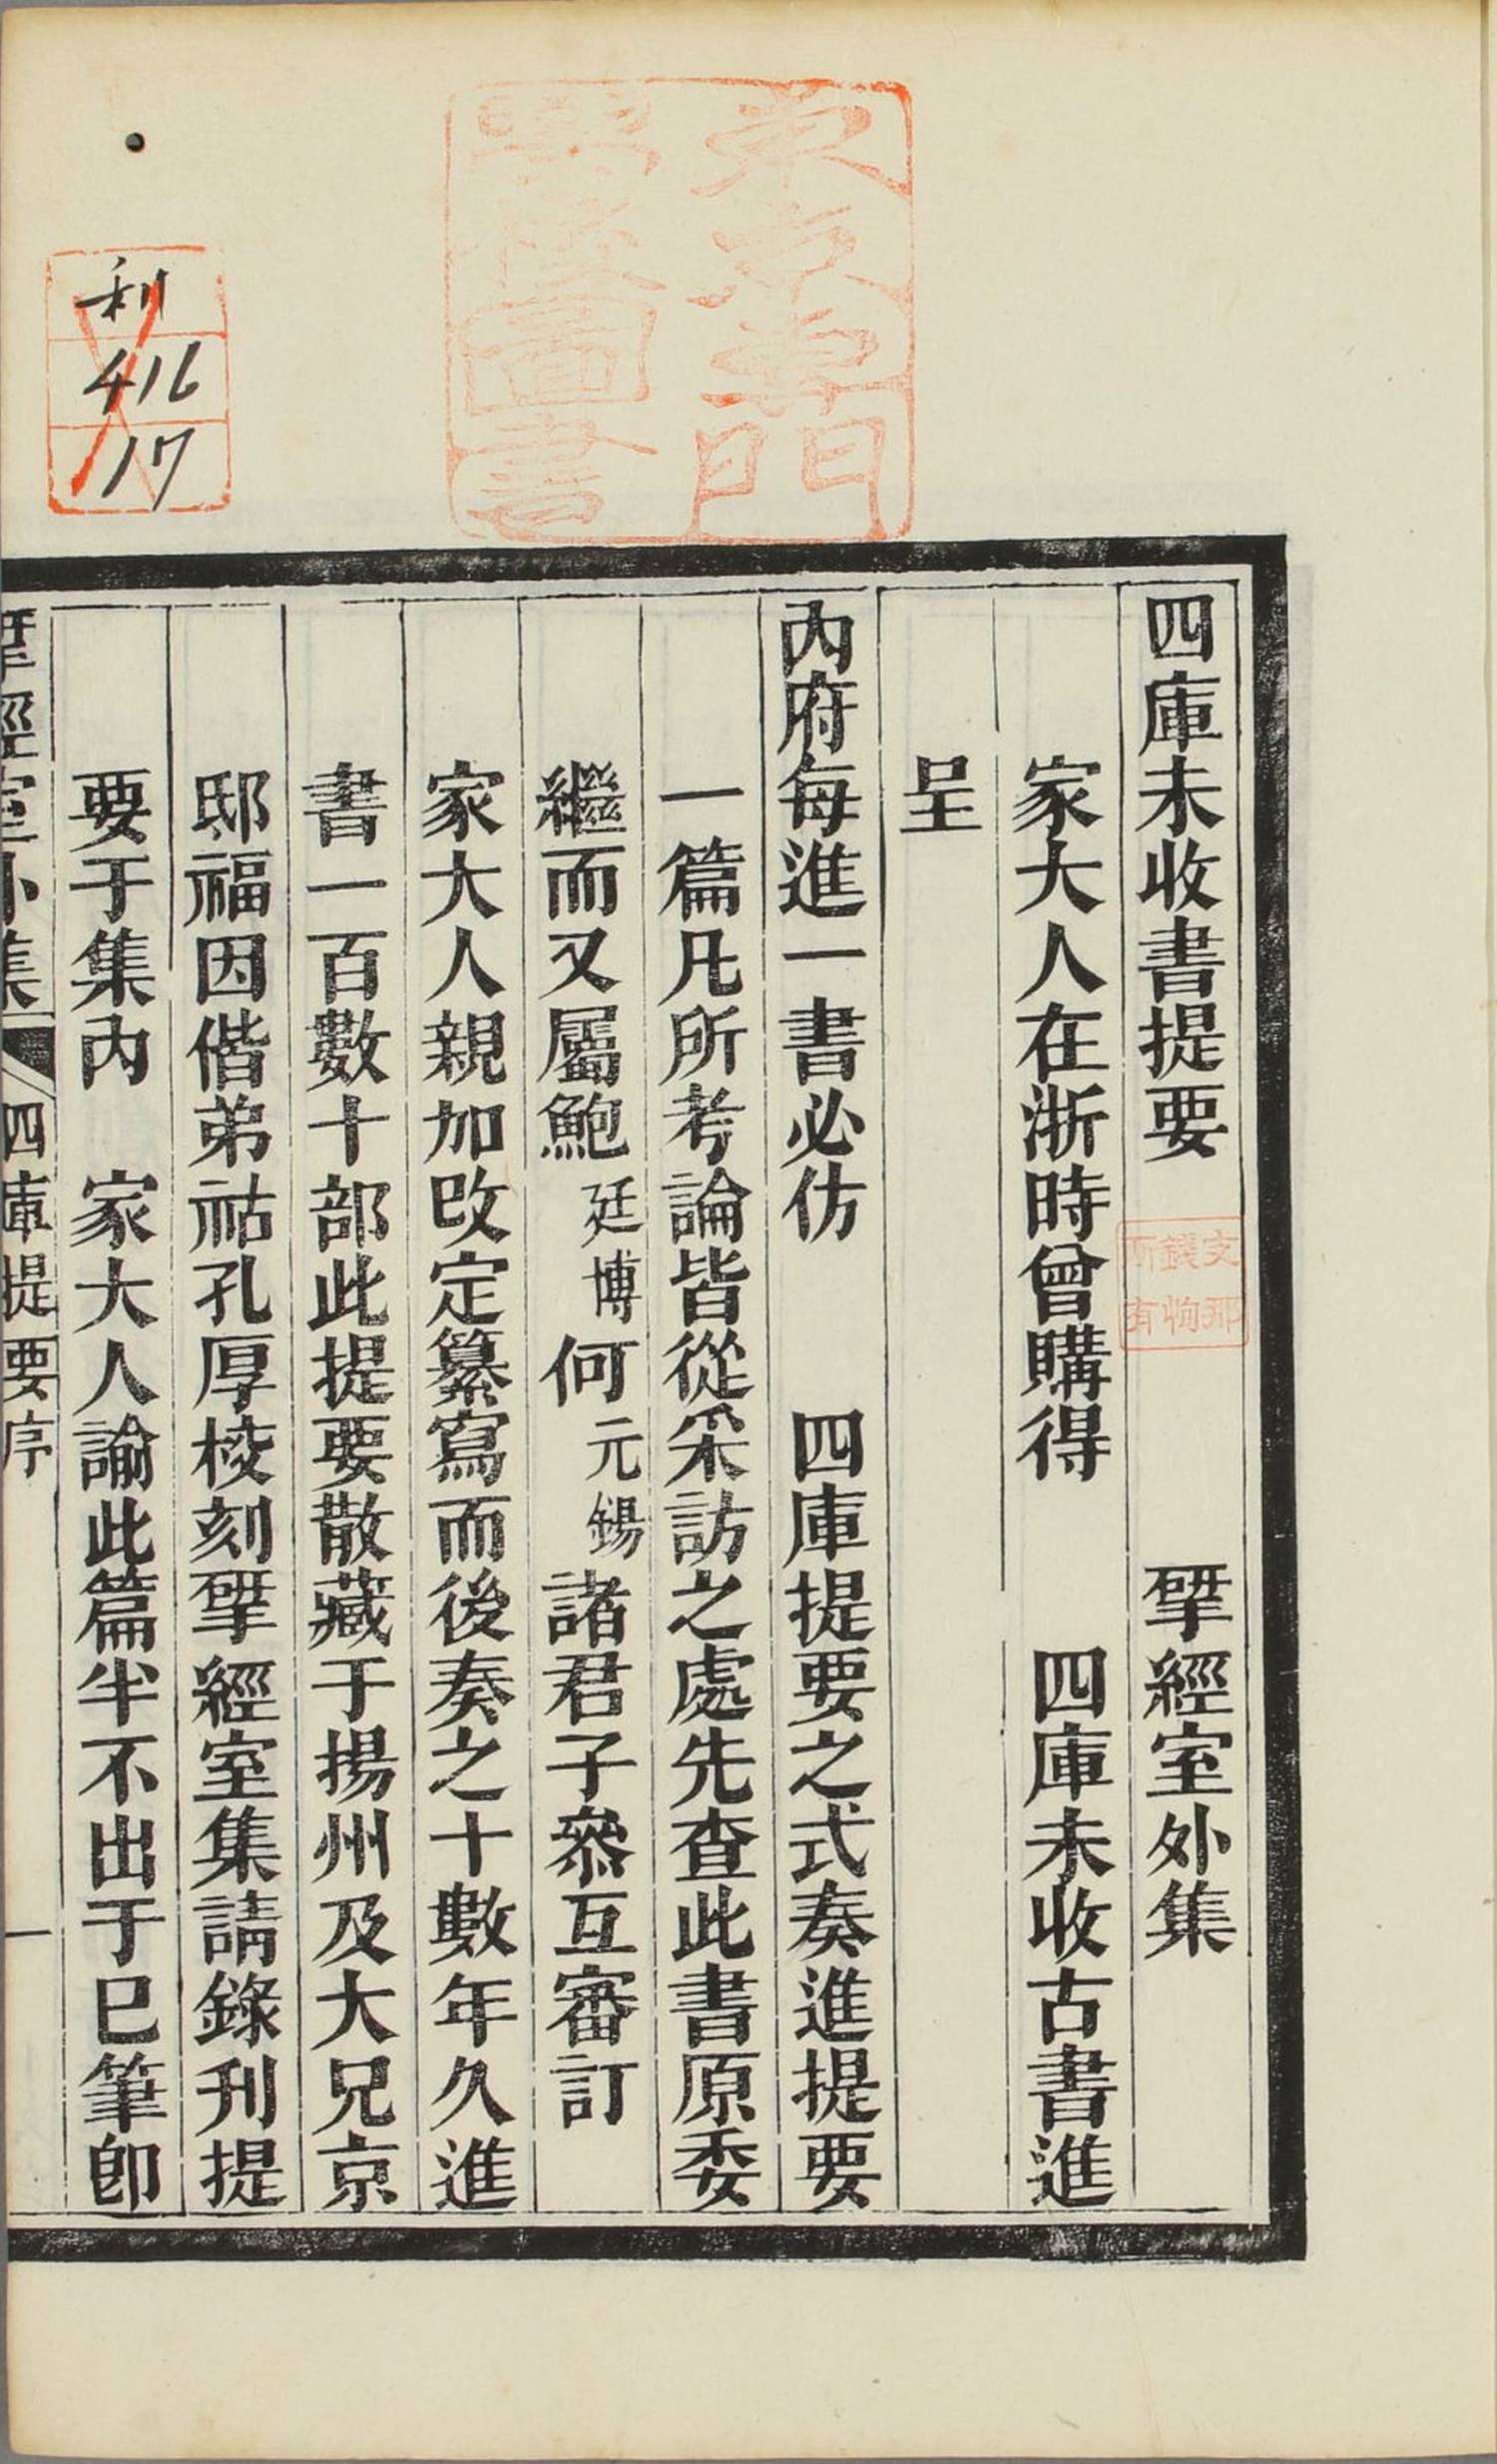 四庫未收書提要　揅經室外集
家大人在浙時曾購得　四庫未收古書進
呈
內府每進一書必仿　四庫提要之式奏進提要
一篇凡所考論皆從采訪之處先查此書原委
繼而又屬鮑廷博何元錫諸君子參互審訂
家大人親加改定纂寫而後奏之十數年久進
書一百數十部此提要散藏于揚州及大兄京
邸福因偕弟祜孔厚校刻揅經室集請錄刊提
要于集內　家大人諭此篇半不出于已筆卽
揅經室外集　四庫提要序　一
圖書
利
416
17